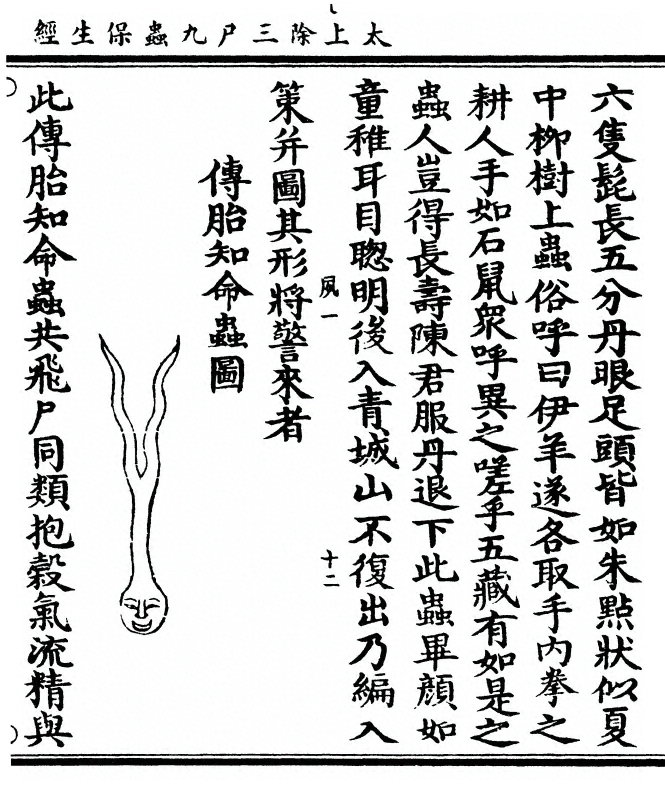 太上除三尸九蟲保生經
六隻髭長五分丹眼足頭皆如朱點狀似夏
中柳樹上蟲俗呼曰伊羊遂各取手內拳之
耕人手如石鼠眾呼異之嗟乎五藏有如是之
蟲人豈得長壽陳君服丹退下此蟲畢顏如
童稚耳目聦明後入青城山不復出乃編入
夙一
十二
策并圖其形將警來者
傳胎知命蟲圖
此傳胎知命蟲共飛尸同類抱穀氣流精與